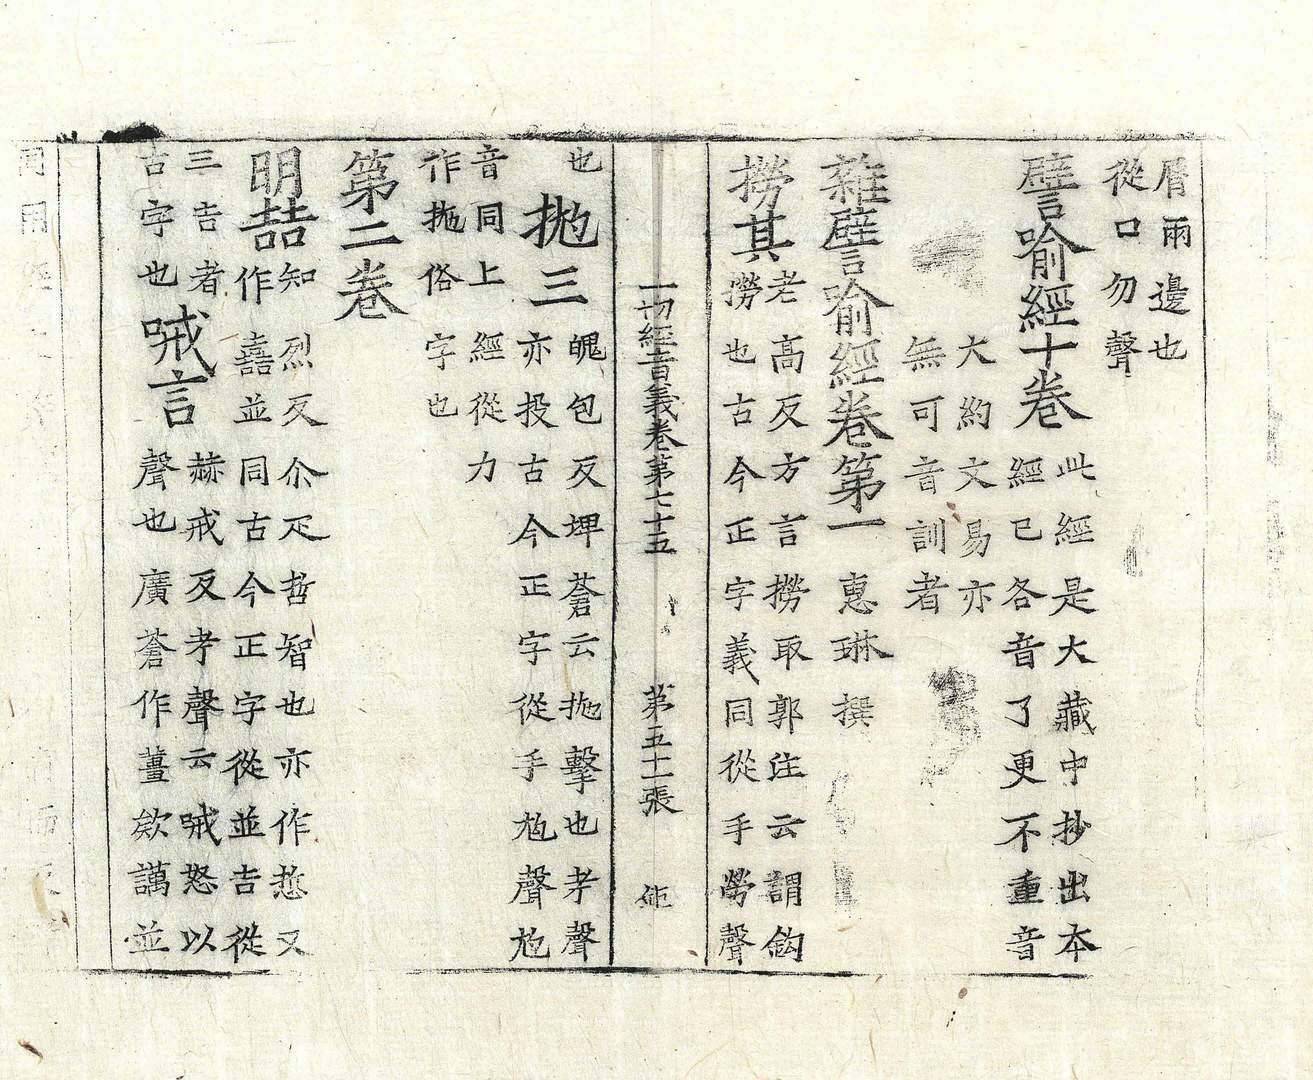 脣兩邊也
從口勿聲
譬喻經十卷
此經是大藏中抄出本
經已各音了更不重音
大約文易亦
無可音訓者
雜譬喻經卷第一 惠琳撰
撈其
老高反方言撈取郭注云謂鈎
撈也古今正字義同從手勞聲
一切經音義卷第七十五 第五十一張
也
拋三
魄包反埤蒼云拋擊也考聲
亦投古今正字從手尥聲尥
音同上經從力
作拋俗字也
第二卷
明喆
知烈反尒疋哲智也亦作悊又
作嚞並同古今正字從並吉從
三吉者
古字也
㖑言
赫戒反考聲云㖑怒以
聲也廣蒼作䜕欬講並